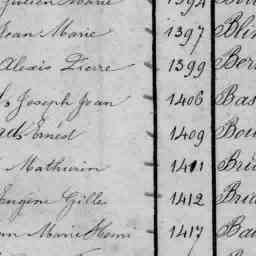 Julien Marie 1394
Jean Marie 1397
Alexis Pierre 1399 Ber
Joseph Jean 1406 Bas
Ernest 1409 Bou
Mathurin 1411
Eugène Gilles 1412
Marie Henri 1417 Bau